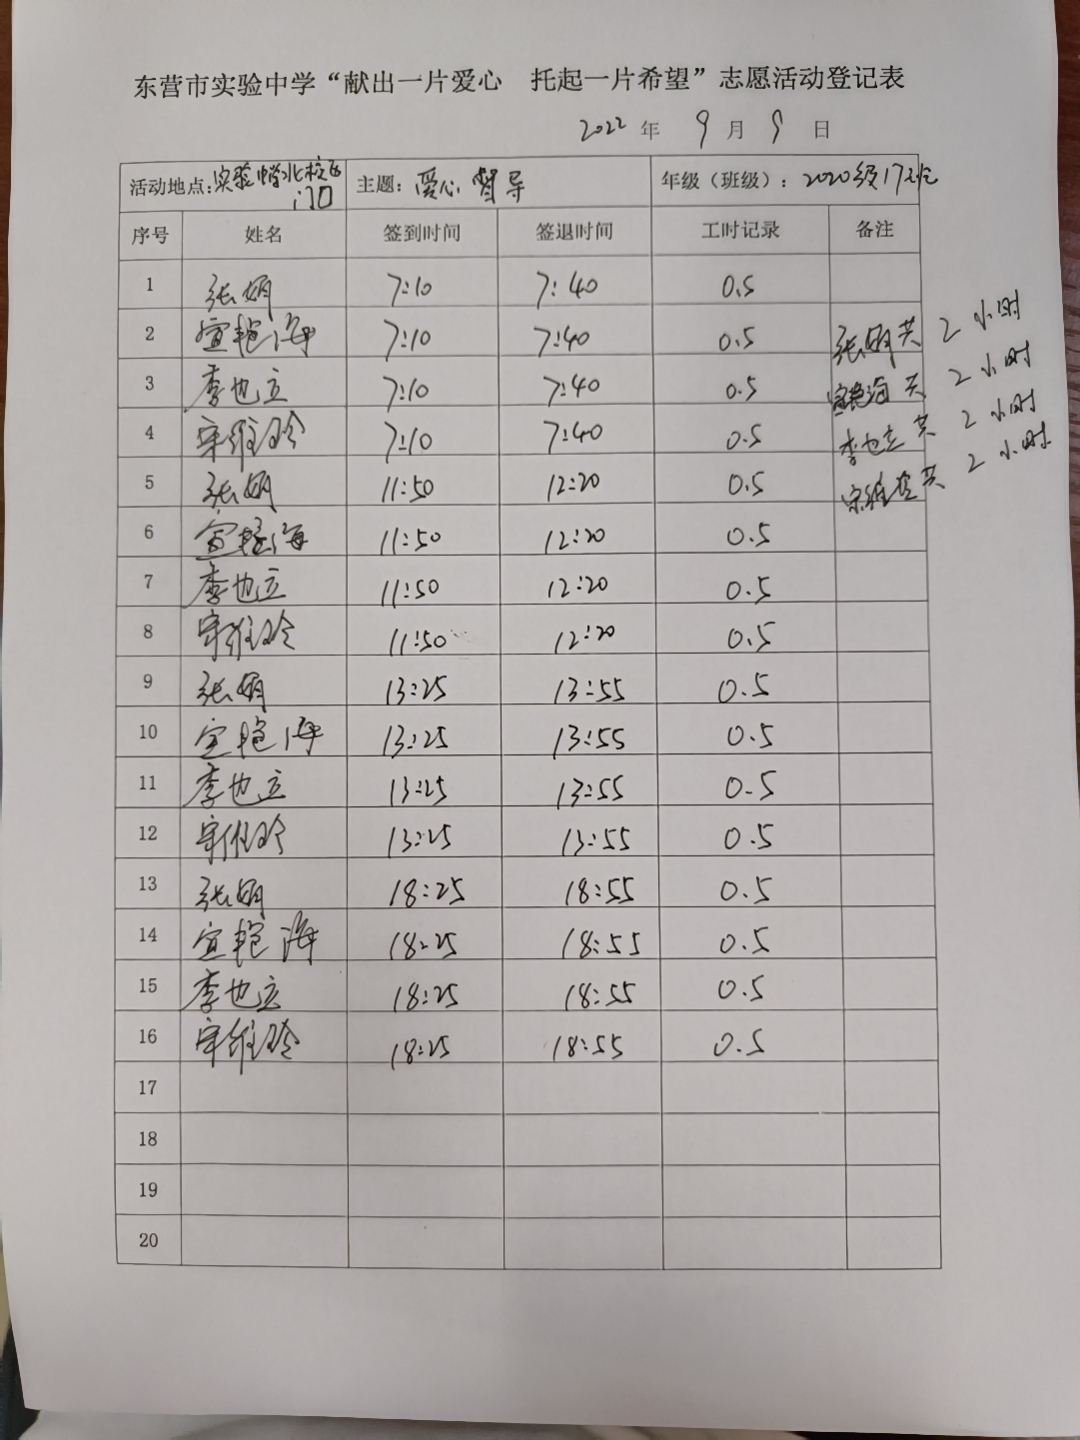 东营市实验中学“献出一片爱心 托起一片希望”志愿活动登记表
2022 年 9 月 9 日
活动地点:实验中学北校区门口 主题:爱心督导 年级(班级):2020级17班
序号 姓名 签到时间 签退时间 工时记录 备注
1 张娟 7:10 7:40 0.5
2 宣艳海 7:10 7:40 0.5 张娟共 2小时
3 李也立 7:10 7:40 0.5 宣艳海共 2小时
4 宋维玲 7:10 7:40 0.5 李也立共 2小时
5 张娟 11:50 12:20 0.5 宋维玲共 2小时
6 宣艳海 11:50 12:20 0.5
7 李也立 11:50 12:20 0.5
8 宋维玲 11:50 12:20 0.5
9 张娟 13:25 13:55 0.5
10 宣艳海 13:25 13:55 0.5
11 李也立 13:25 13:55 0.5
12 宋维玲 13:25 13:55 0.5
13 张娟 18:25 18:55 0.5
14 宣艳海 18:25 18:55 0.5
15 李也立 18:25 18:55 0.5
16 宋维玲 18:25 18:55 0.5
17
18
19
20